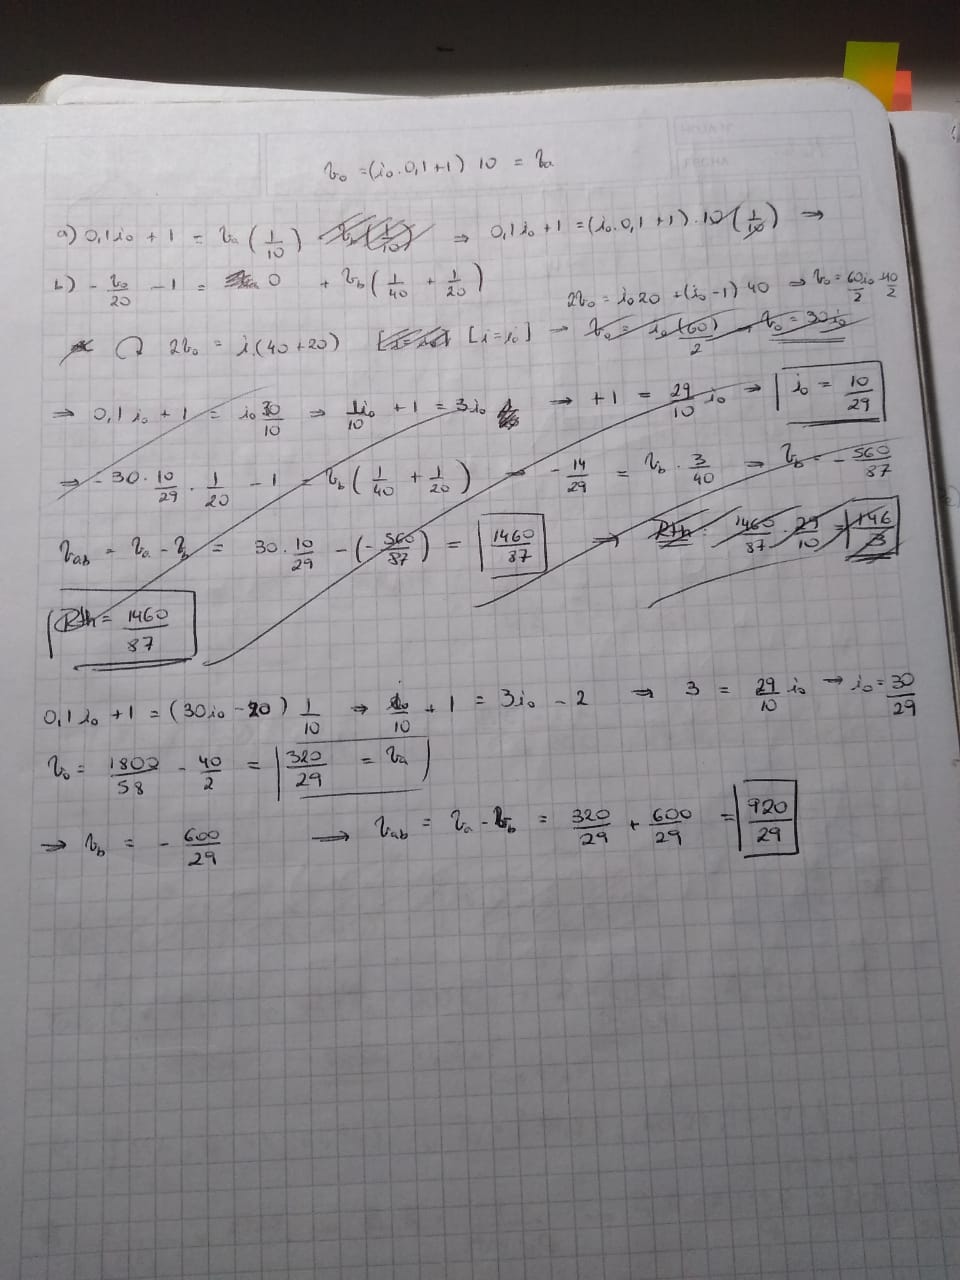 v₀ = (i₀·0,1+1) 10 = va
a) 0,1i₀ + 1 = va (1/10) ⇒ 0,1i₀ + 1 = (i₀·0,1 + 1)·10 (1/10) ⇒
b) - v₀/20 - 1 = 0 + vb (1/40 + 1/20)
2v₀ = i₀20 + (i₀-1) 40 ⇒ v₀ = 60i₀/2 - 40/2
2v₀ = i(40+20) [i=i₀] → v₀ = i₀(60)/2 → v₀ = 30i₀
⇒ 0,1i₀ + 1 = i₀ 30/10 ⇒ 1i₀/10 + 1 = 3i₀ → +1 = 29/10 i₀ → i₀ = 10/29
⇒ -30·10/29·1/20 - 1 = vb (1/40 + 1/20) → -14/29 = vb·3/40 ⇒ vb = -560/87
vab = va - vb = 30·10/29 - (-560/87) = 1460/87 ⇒ Rth: 1460/87·29/10 = 146/3
Rth = 1460/87
0,1i₀ + 1 = (30i₀ - 20) 1/10 → i₀/10 + 1 = 3i₀ - 2 → 3 = 29/10 i₀ → i₀ = 30/29
v₀ = 1800/58 - 40/2 = 320/29 = va
⇒ vb = - 600/29 → vab = va - vb = 320/29 + 600/29 = 920/29